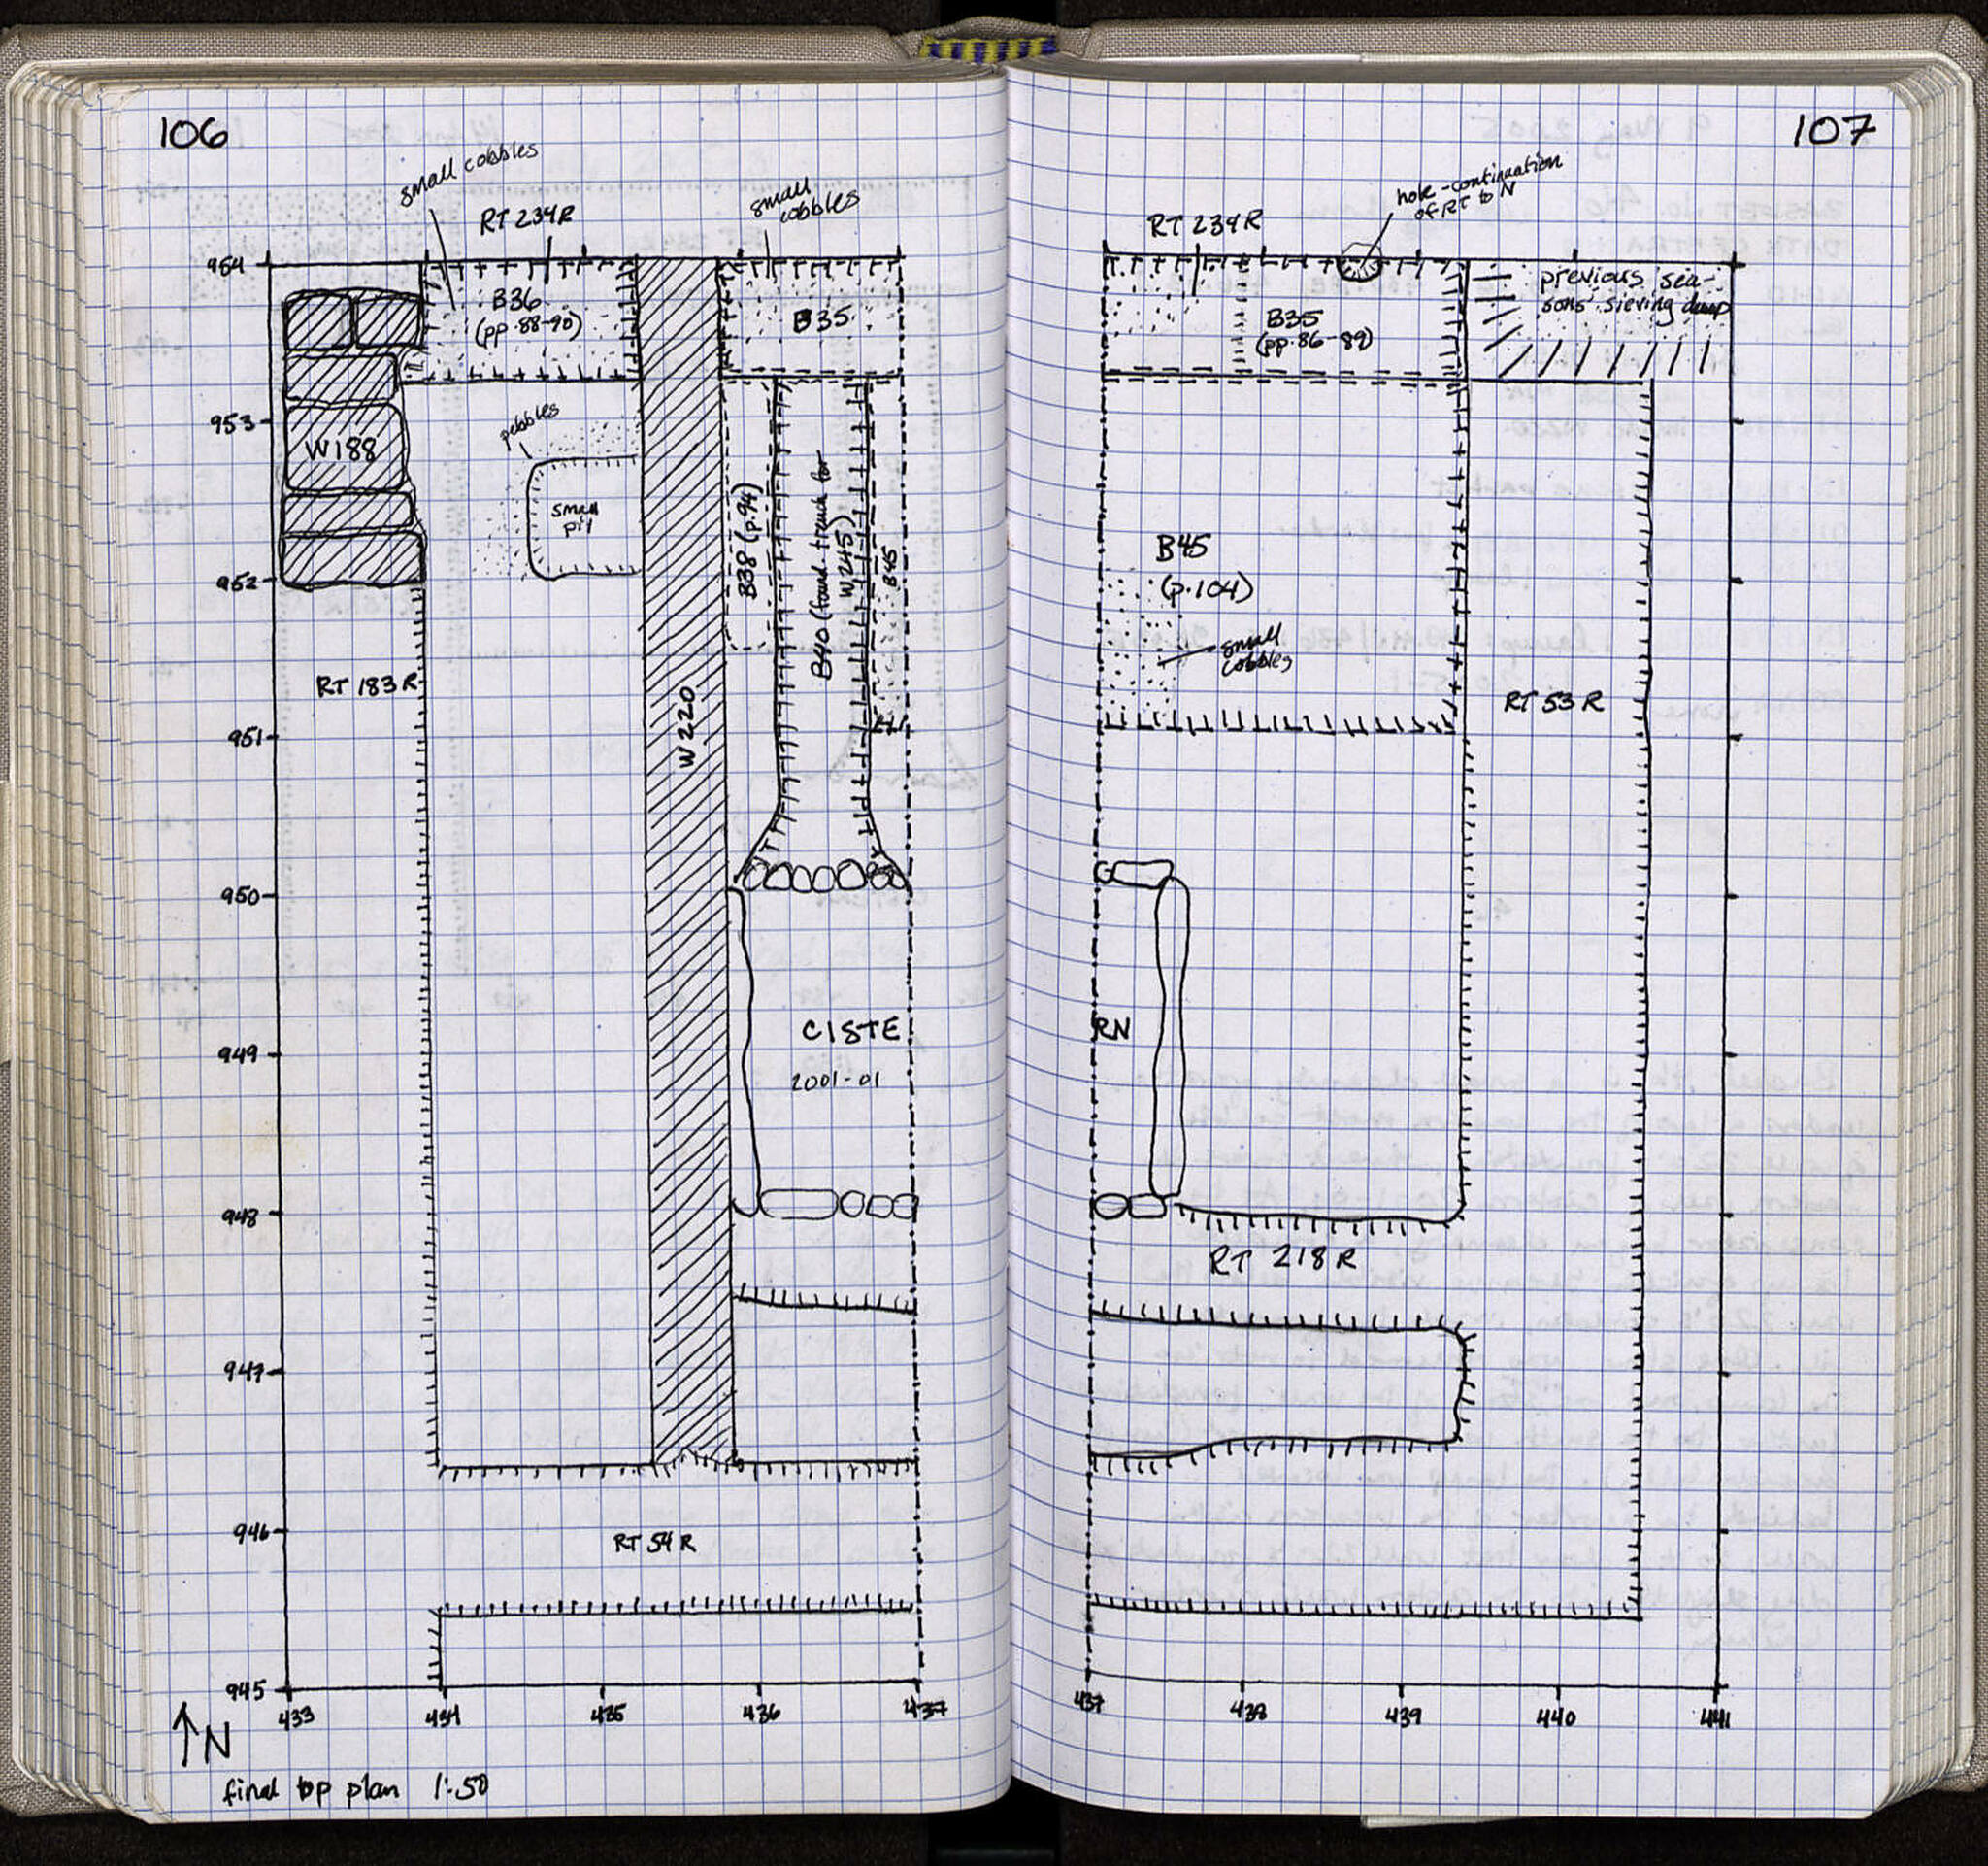 106
small cobbles
RT 234R
small
cobbles
954
B36
(pp. 88-90)
B35
953
pebbles
W188
small
pit
B38 (p.94)
B40 (found. trench for
W245)
B45
952
RT 183 R
W 220
951
950
CISTE
949
2001-01
948
947
946
RT 54 R
945
433
434
435
436
437
↑N
final top plan 1:50
107
hole - continuation
of RT to N
RT 234R
previous sea-
sons' sieving dump
B35
(pp. 86-89)
B45
(p.104)
small
cobbles
RT 53 R
RN
RT 218 R
437
438
439
440
441